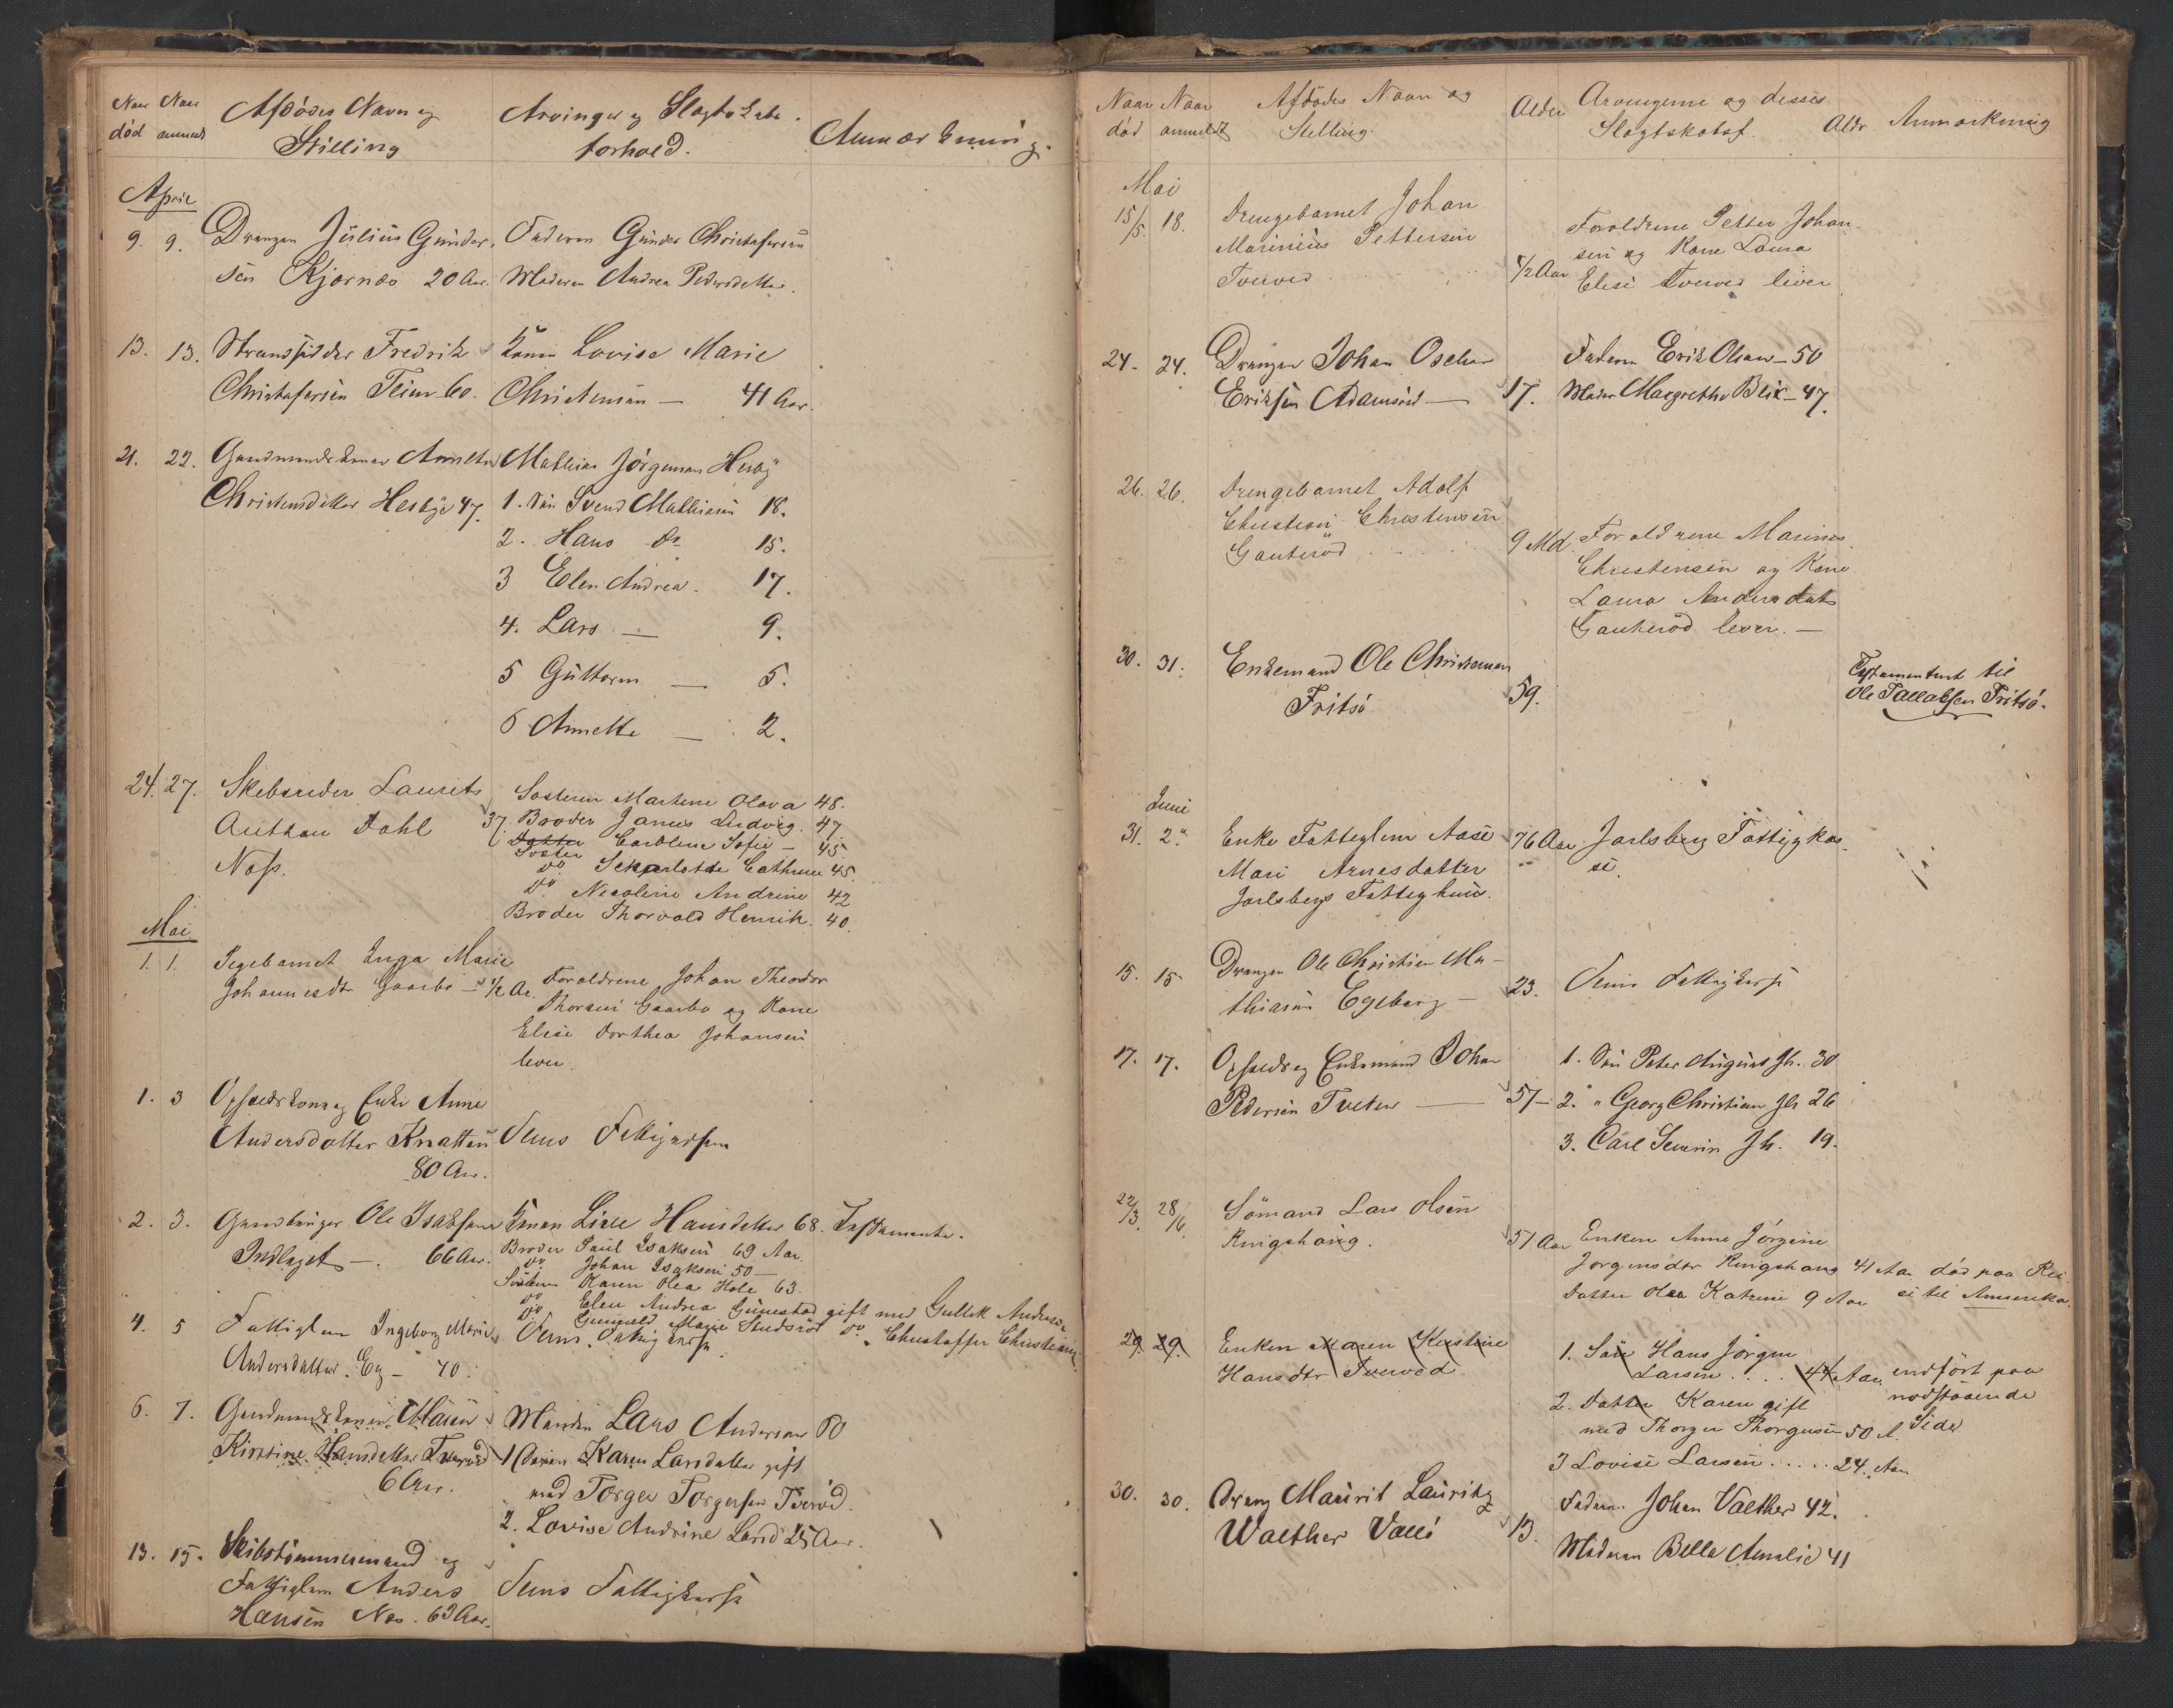 Naar Naar Afdødes Navn og Arvinger og Slægtskabs
død anmeldt Stilling forhold. Anmærkning.
April
9. 9. Drengen Julius Gunder, Faderen Gunder Christofersen
sen Kjærnæs 20 Aar. Moderen Andrea Pedersdatter.
13. 13. Strandsidder Fredrik Konen Lovise Marie
Christofersen Teien 60. Christensen — 41 Aar.
21. 22. Gaardmandskone Annette Mathias Jørgensen Hesby
Christensdatter Hesbye 47. 1. Søn Svend Mathiasen 18.
2. Hans do 15.
3 Elen Andrea. 17.
4. Lars — 9.
5 Guttorm — 5.
6 Annette — 2.
24. 27. Skebsreder Laurets Søsteren Martine Olava 48.
Anthon Dahl 37. Broder Janus Ludvig. 47.
Datter Caroline Sofie — 45
Næss. Søster
do Scharlotte Cathrine 45.
do Nicoline Andrine 42
Broder Thorvald Henrik. 40.
Mai
1. 1. Pigebarnet Inga Marie
Johannesdtr Gaarbo — 1/2 Aar. Forældrene Johan Theodor
Thorsen Gaarbo og Kone
Elise Dorthea Johansen
lever.
1. 3 Opholdskone og Enke Anne
Andersdatter Knatten Sems Fattigkasse
80 Aar.
2. 3. Gaardbruger Ole Isaksen Konen Live Hansdatter 68. Testamente.
Indlaget —. 66 Aar. Broder Paul Isaksen 69 Aar.
do Johan Isaksen 50 —
Søsteren Karen Olea Hole 63
do Elen Andrea Gunestad gift med Gullik Anders
do Gunnild Marie Studsrød do " Christoffer Christians
4. 5 Fattiglem Ingeborg Marie Sems Fattigkasse.
Andersdatter. Eg — 70.
6. 7. Gaardmandskone Maren Manden Lars Andersen 80
Kirstine Hansdatter Tverød 1 Datter Karen Larsdatter gift
6 Aar. med Torger Torgersen Tverød.
2. Lovise Andrine Larsd 25 Aar.
13. 15. Skibstømmermand og
Fattiglem Anders Sems Fattigkasse
Hansen Næs. 63 Aar.
Naar Naar Afdødes Navn og Alder Arvingerne og disses
død anmeldt Stilling. Slegtskabsf. Aldr Anmærkning
Mai
15/5. 18. Drengebarnet Johan
Marinius Pettersen Forældrene Petter Johan
Tverved 1/2 Aar sen og Kone Laura
Elise Tverved lever
24. 24. Drengen Johan Oscher Faderen Erik Olsen — 50
Eriksen Adamsrød — 17. Moder Margrethe Blix — 47.
26. 26. Drengebarnet Adolf
Christian Christensen
Gauterød 9 Md. Forældrene Marinus
Christensen og Kone
Laura Andersdatr
Gauterød lever. —
30. 31. Enkemand Ole Christensen
Fritsø 59. Testamentert til
Ole Pallesen Fritsø.
Juni
31. 2. Enke Fatteglem Aase 76 Aar Jarlsberg Fattigkas
Mari Arnesdatter se.
Jarlsbergs Fatteghuus.
15. 15 Drengen Ole Christian Ma-
thiasen Egeberg — 23. Sems Fattigkasse
17. 17. Opholds og Enkemand Johan 1. Søn Peter August Jh. 30
Pedersen Tveten — 57 — 2. " Georg Christian Jh 26
3. Carl Severin Jh. 19.
22/3. 28/6. Sømand Lars Olsen
Ringshaug. 51 Aar Enken Anne Jørgine
Jørgensdtr Ringshaug 41 Aar død paa Rei
Datter Olea Katrine 9 Aar se til Amerika.
29. 29. Enken Maren Kirstine 1. Søn Hans Jørgen
Hansdtr Tverved. Larsen .... 44 Aar. indført paa
2. Datter Karen gift modstaaende
med Thorger Thorgersen 50 A. Side
3 Lovise Larsen ..... 24. Aar
30. 30. Dreng Maurit Lauritz Faderen Johan Valther 42.
Walther Vallø 13. Moderen Bella Amalie 41